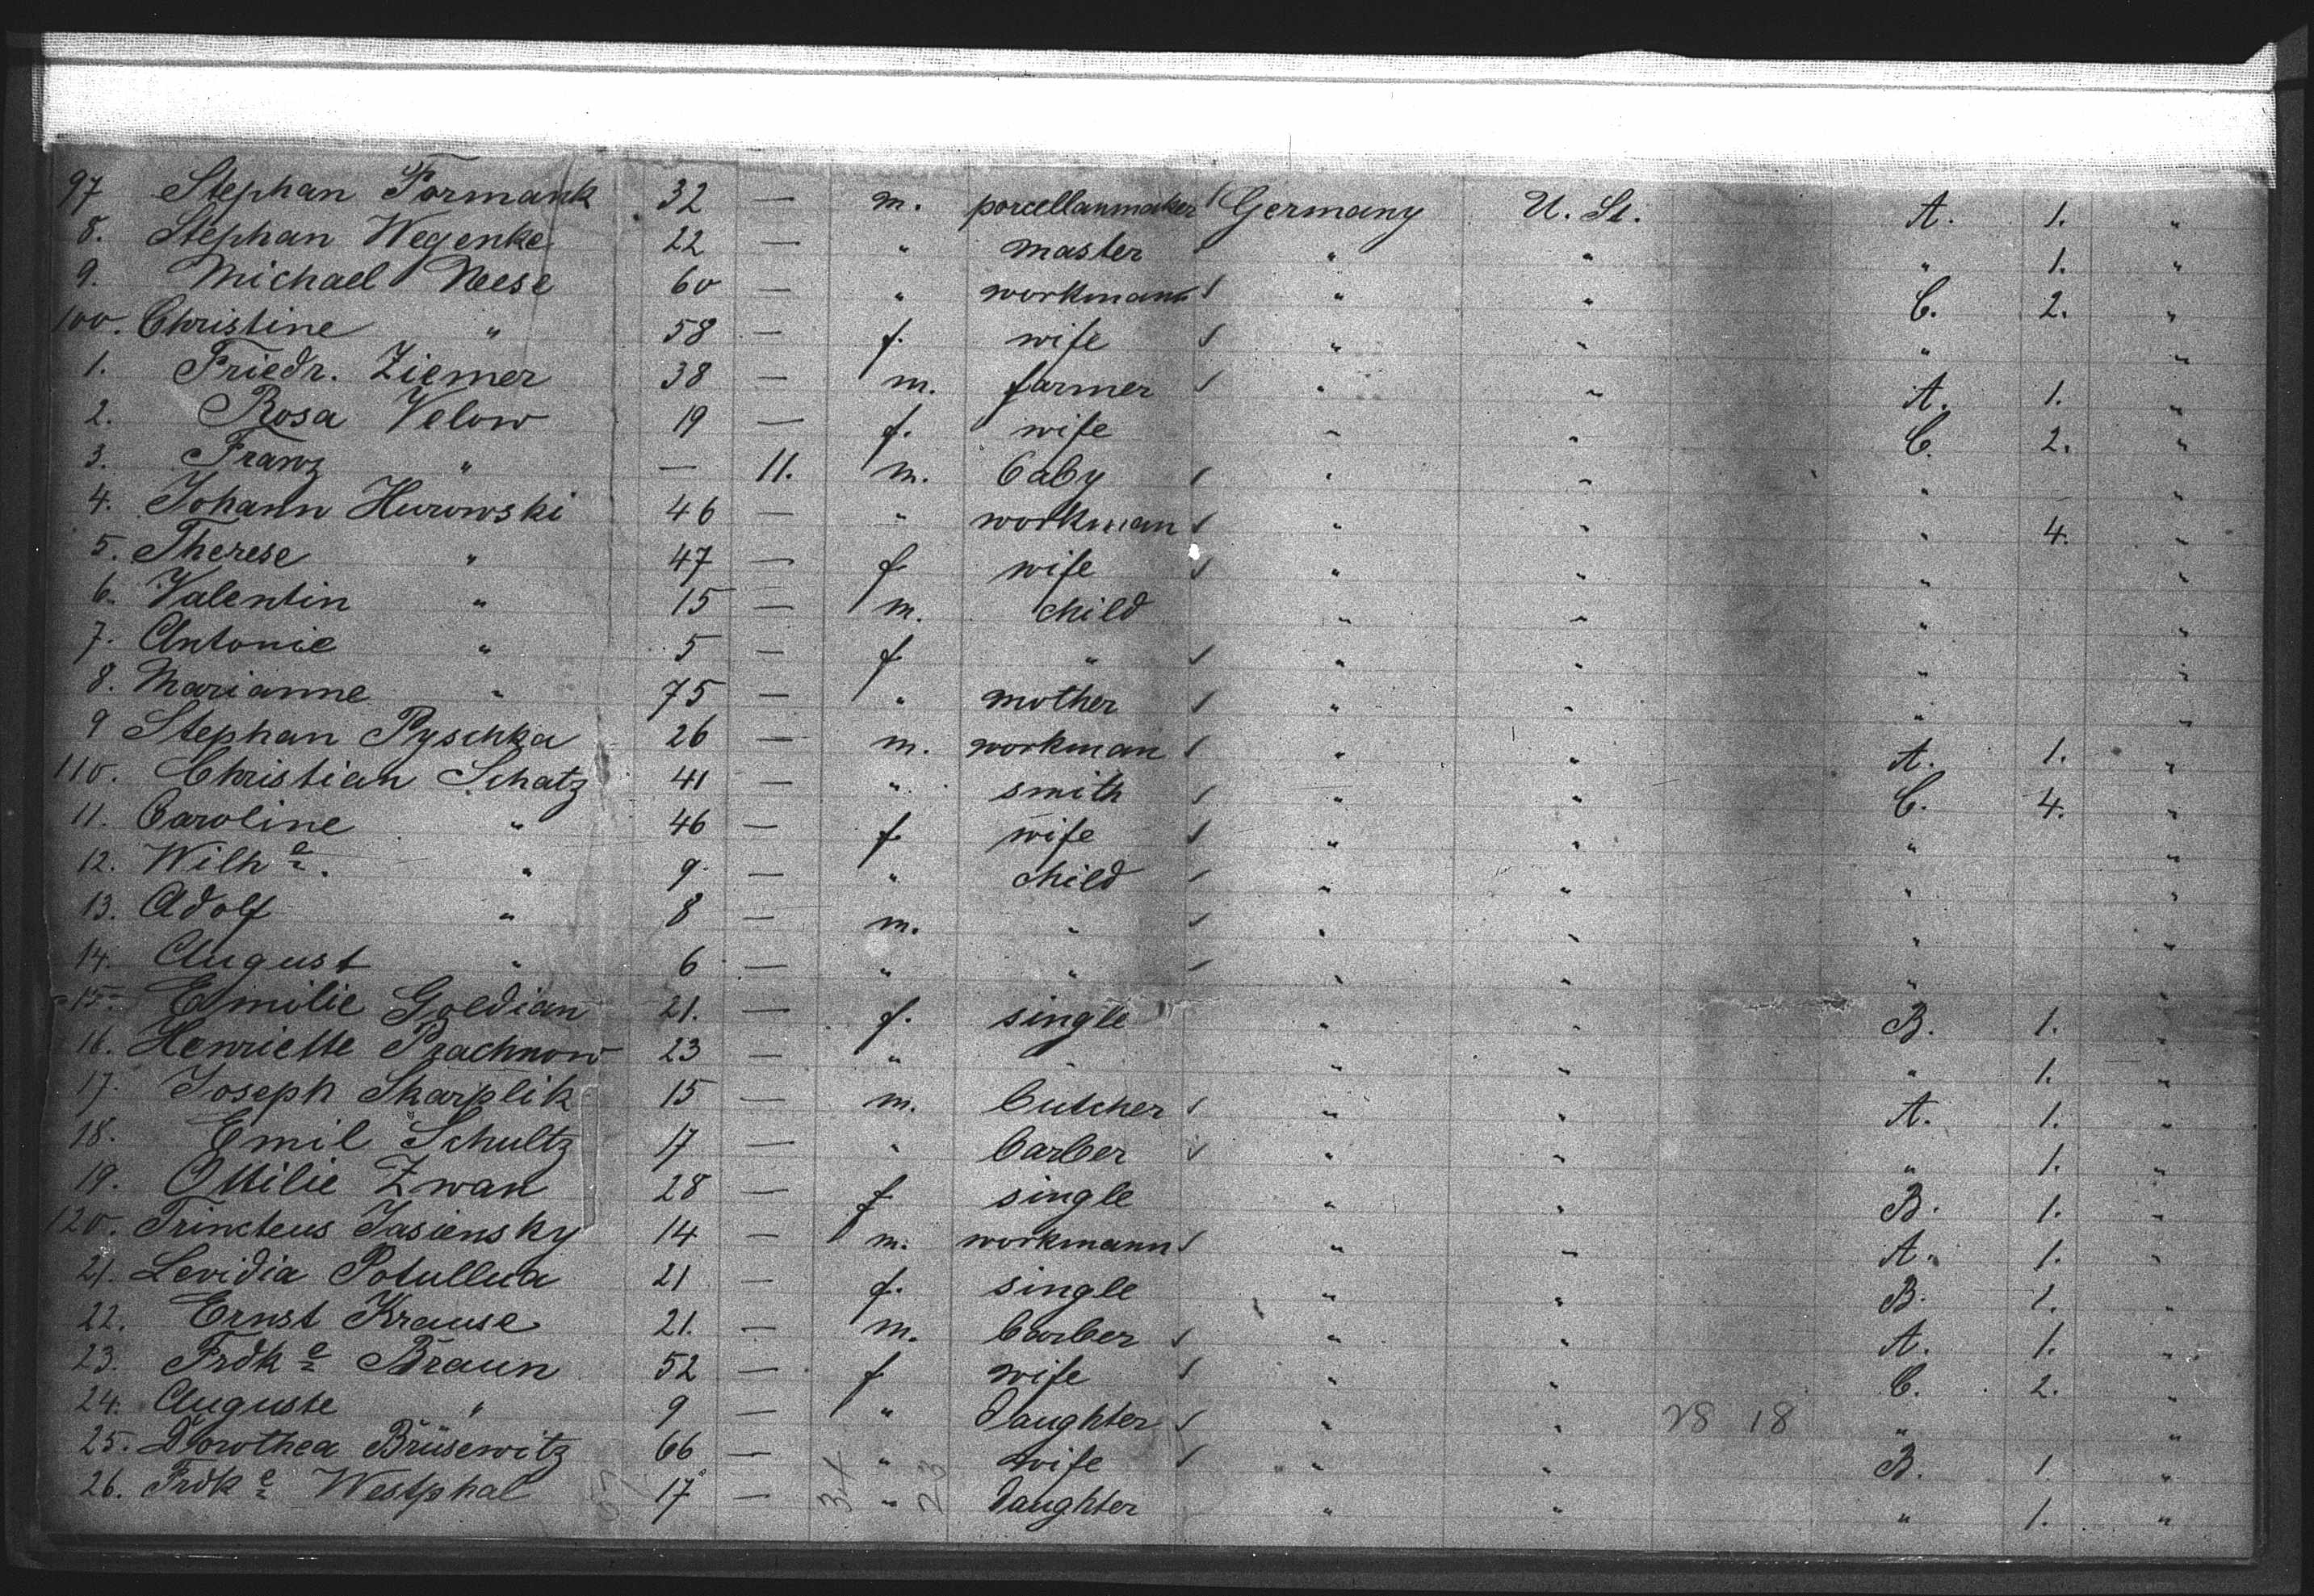 97 Stephan Formank 32 — m. porcellanmaker Germany U. St. A. 1. "
8. Stephan Wegenke 22 — " master " " " 1. "
9. Michael Neese 60 — " workmann " " C. 2. "
100. Christine " 58 — f. wife " " " "
1. Friedr. Ziemer 38 — m. farmer " " A. 1. "
2. Rosa Velow 19 — f. wife " " C. 2. "
3. Franz " — 11. m. baby " " " "
4. Johann Hurowski 46 — " workman " " " 4. "
5. Therese " 47 — f wife " " " "
6. Valentin " 15 — m. child " " " "
7. Antonie " 5 — f " " " " "
8. Marianne " 75 — " mother " " " "
9 Stephan Pyschka 26 — m. workman " " A. 1. "
110. Christian Schatz 41 — " smith " " C. 4. "
11. Caroline " 46 — f wife " " " "
12. Wilhe. " 9 — " child " " " "
13. Adolf " 8 — m. " " " " "
14. August " 6 — " " " " " "
15 Emilie Goldian 21. — f. single " " B. 1. "
16. Henriette Prachnow 23 — " " " " " 1. "
17. Joseph Skarplik 15 — m. butcher " " A. 1. "
18. Emil Schultz 17 — " barber " " " 1. "
19. Ottilie Zwan 28 — f single " " B. 1. "
120. Jasiensky 14 — m. workmann " " A. 1. "
21. Levidia Potullua 21 — f. single " " B. 1. "
22. Ernst Krause 21. — m. barber " " A. 1. "
23. Frdke Braun 52 — f wife " " C. 2. "
24. Auguste " 9 — " daughter " " 28 18 " "
25. Dorothea Brüsewitz 66 — " wife " " B. 1. "
26. Frdke Westphal 17 — " daughter " " " 1. "
23